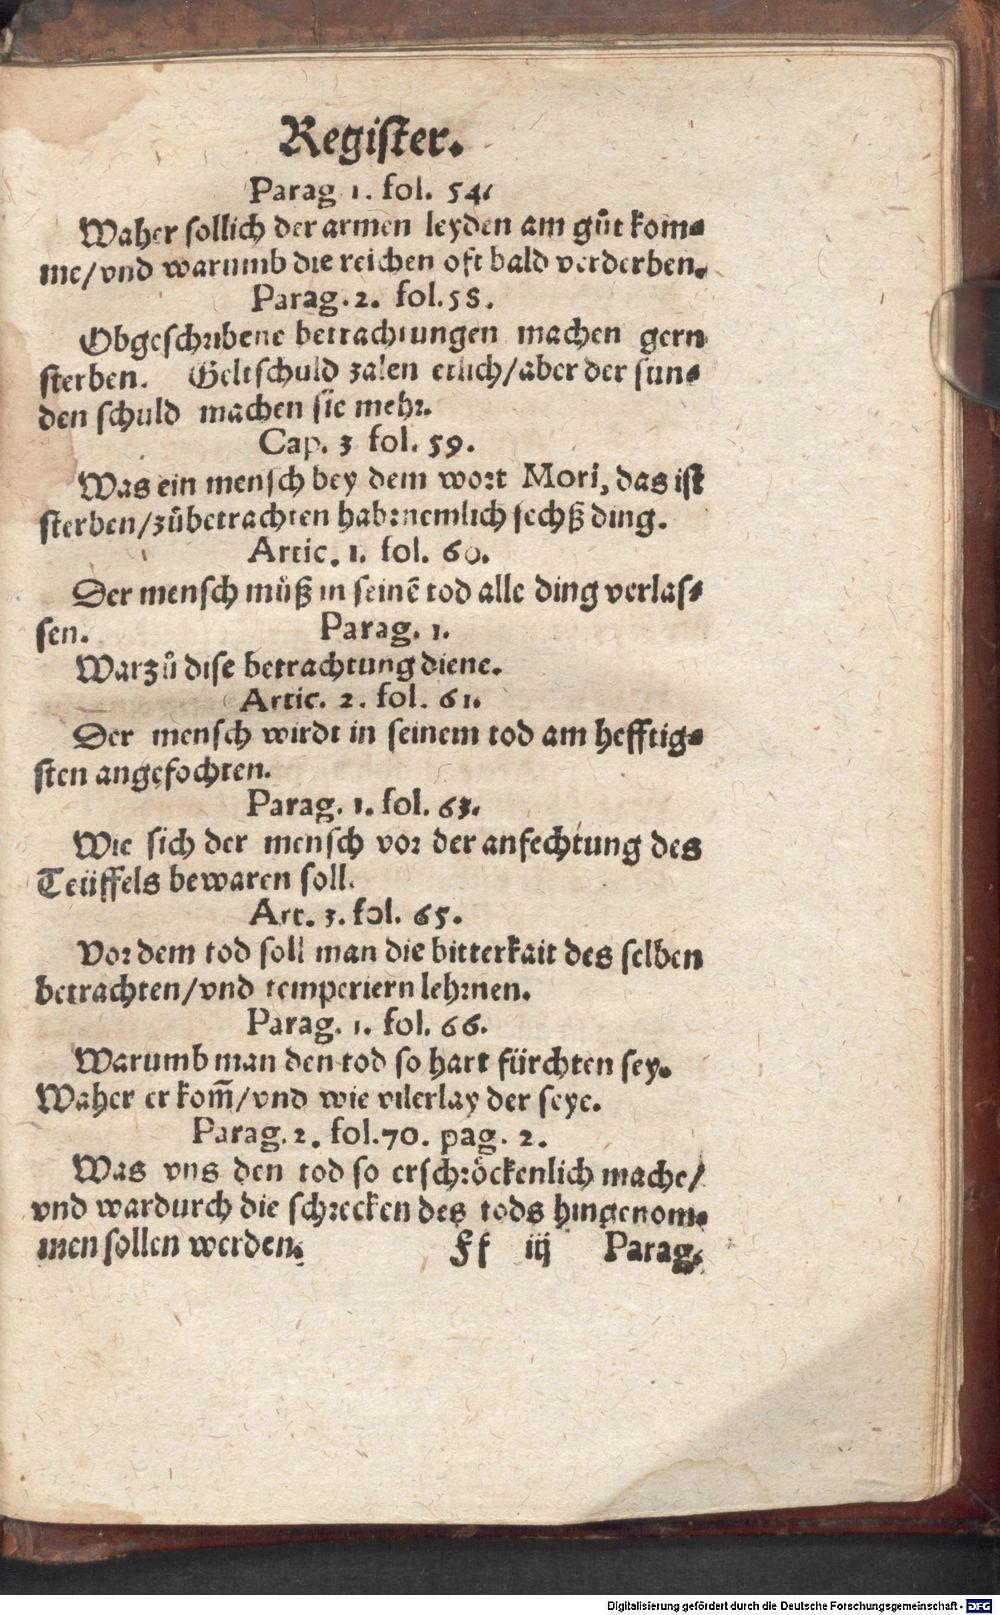 Register.
Parag 1. fol. 54.
Waher sollich der armen leyden am gůt kom-
me/vnd warumb die reichen oft bald verderben.
Parag. 2. fol. 58.
Obgeschribene betrachtungen machen gern
sterben. Geltschuld zalen etlich/aber der sun-
den schuld machen sie mehr.
Cap. 3 fol. 59.
Was ein mensch bey dem wort Mori, das ist
sterben/zůbetrachten hab: nemlich sechß ding.
Artic. 1. fol. 60.
Der mensch můß in seinē tod alle ding verlas-
sen. Parag. 1.
Warzů dise betrachtung diene.
Artic. 2. fol. 61.
Der mensch wirdt in seinem tod am hefftig-
sten angefochten.
Parag. 1. fol. 63.
Wie sich der mensch vor der anfechtung des
Teüffels bewaren soll.
Art. 3. fol. 65.
Vor dem tod soll man die bitterkait des selben
betrachten/vnd temperiern lehrnen.
Parag. 1. fol. 66.
Warumb man den tod so hart fürchten sey.
Waher er kom̃/vnd wie vilerlay der seye.
Parag. 2. fol. 70. pag. 2.
Was vns den tod so erschröckenlich mache/
vnd wardurch die schrecken des tods hingenom-
men sollen werden. Ff iij Parag.
Digitalisierung gefördert durch die Deutsche Forschungsgemeinschaft - DFG